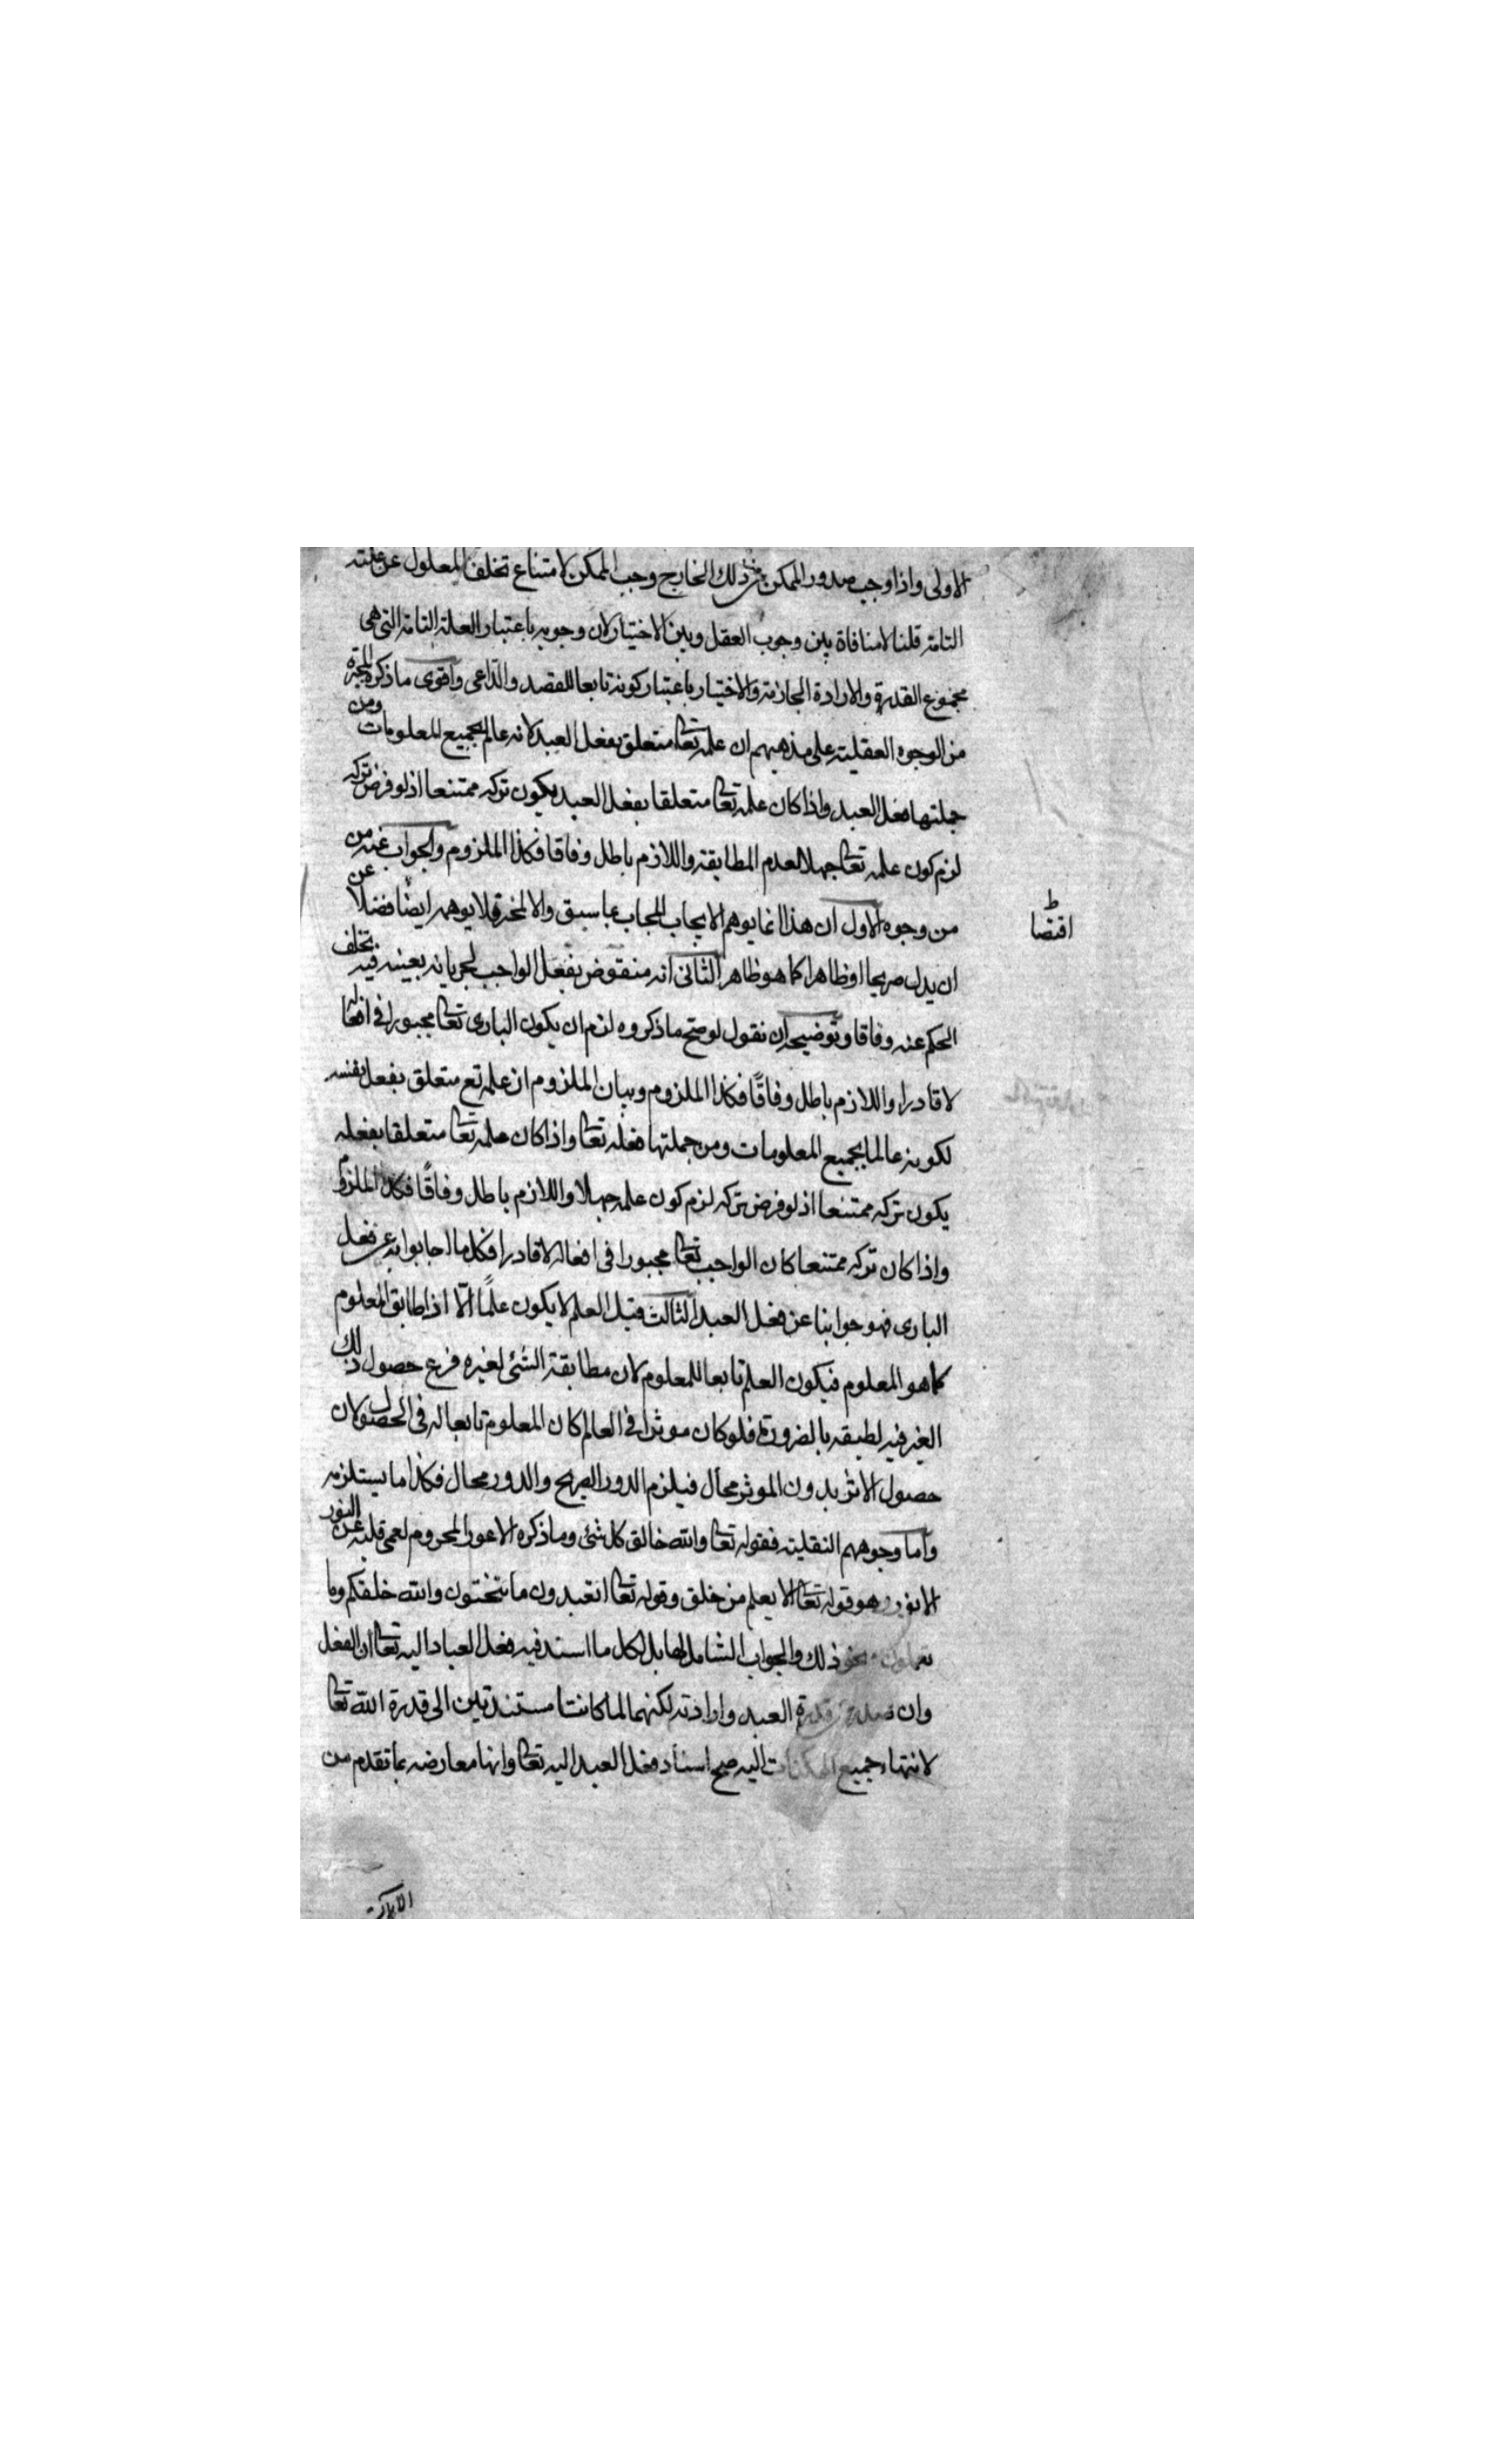 الاولى واذا وجب صدور الممكن عن ذلك الخارج وجب الممكن لامتناع تخلف المعلول عن علته
التامة قلنا لا منافاة بين وجوب العقل وبين الاختيار لان وجوبه باعتبار العلة التامة التى هى
مجموع القدرة والارادة الجازمة والاختيار باعتبار كونه تابعا للقصد والداعى واقوى ما ذكره المجبرة
من الوجوه العقلية على مذهبهم ان علمه تعا متعلق بفعل العبد لانه عالم بجميع المعلومات ومن
جملتها فعل العبد واذا كان علمه تعا متعلقا بفعل العبد يكون تركه ممتنعا اذ لو فرض تركه
لزم كون علمه تعا جهلا لعدم المطابقة واللازم باطل وفاقا فكذا الملزوم والجواب عنه من
من وجوه الاول ان هذا انما يوهم الايجاب المجاب عما سبق والا لخرق لا يوهم ايضا فضلا عن
ان يدل صريحا او ظاهرا كما هو ظاهر الثانى انه منقوض بفعل الواجب لجريانه بعينه فيه بتخلف
الحكم عنه وفاقا وتوضيحه ان نقول لو صح ما ذكروه لزم ان يكون البارى تعا مجبورا فى افعاله
لا قادرا واللازم باطل وفاقًا فكذا الملزوم وبيان الملزوم ان علمه تع متعلق بفعل نفسه
لكونه عالما بجميع المعلومات ومن جملتها فعله تعا واذا كان علمه تعا متعلقا بفعله
يكون تركه ممتنعا اذ لو فرض تركه لزم كون علمه جهلا واللازم باطل وفاقًا فكذا الملزوم
واذا كان تركه ممتنعا كان الواجب تعا مجبورا فى افعاله لا قادرا فكل ما اجابوا به عن فعل
البارى فهو جوابنا عن فعل العبد الثالث قيل العلم لا يكون علمًا الّا اذا طابق المعلوم
كما هو المعلوم فيكون العلم تابعا للمعلوم لان مطابقة الشئ لغيره فرع حصول ذلك
الغير فيه لطبقه بالضرورة فلو كان موثرا فى العالم كان المعلوم تابعا له فى الحصول لان
حصول الاثر بدون الموثر محال فيلزم الدور الصريح والدور محال فكذا ما يستلزمه
واما وجوههم النقلية فقوله تعا والله خالق كل شئ وما ذكره الاعور المحروم لعمى قلبه عن النور
الانور وهو قوله تعا الا يعلم من خلق وقوله تعا اتعبدون ما تنحتون والله خلقكم وما
تعملون ونحو ذلك والجواب الشامل لها بل لكل ما اسند فيه فعل العباد اليه تعا ان الفعل
وان قدرة العبد وارادته لكنهما لما كانتا مستندتين الى قدرة الله تعا
لانتهاء جميع الممكنات اليه صح اسناد فعل العبد اليه تعا وانها معارضه بما تقدم من
ط
اقتضا